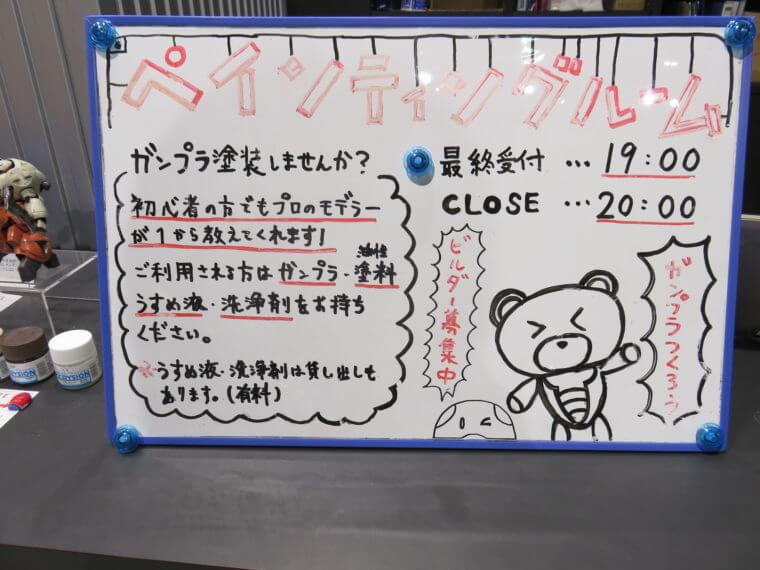 ペインティングルーム
ガンプラ塗装しませんか?
初心者の方でもプロのモデラー
が1から教えてくれます!
油性
ご利用される方はガンプラ・塗料
うすめ液・洗浄剤をお持ち
ください。
※うすめ液・洗浄剤は貸し出しも
あります。(有料)
最終受付 …19:00
CLOSE …20:00
ビルダー募集中
ガンプラつくろう